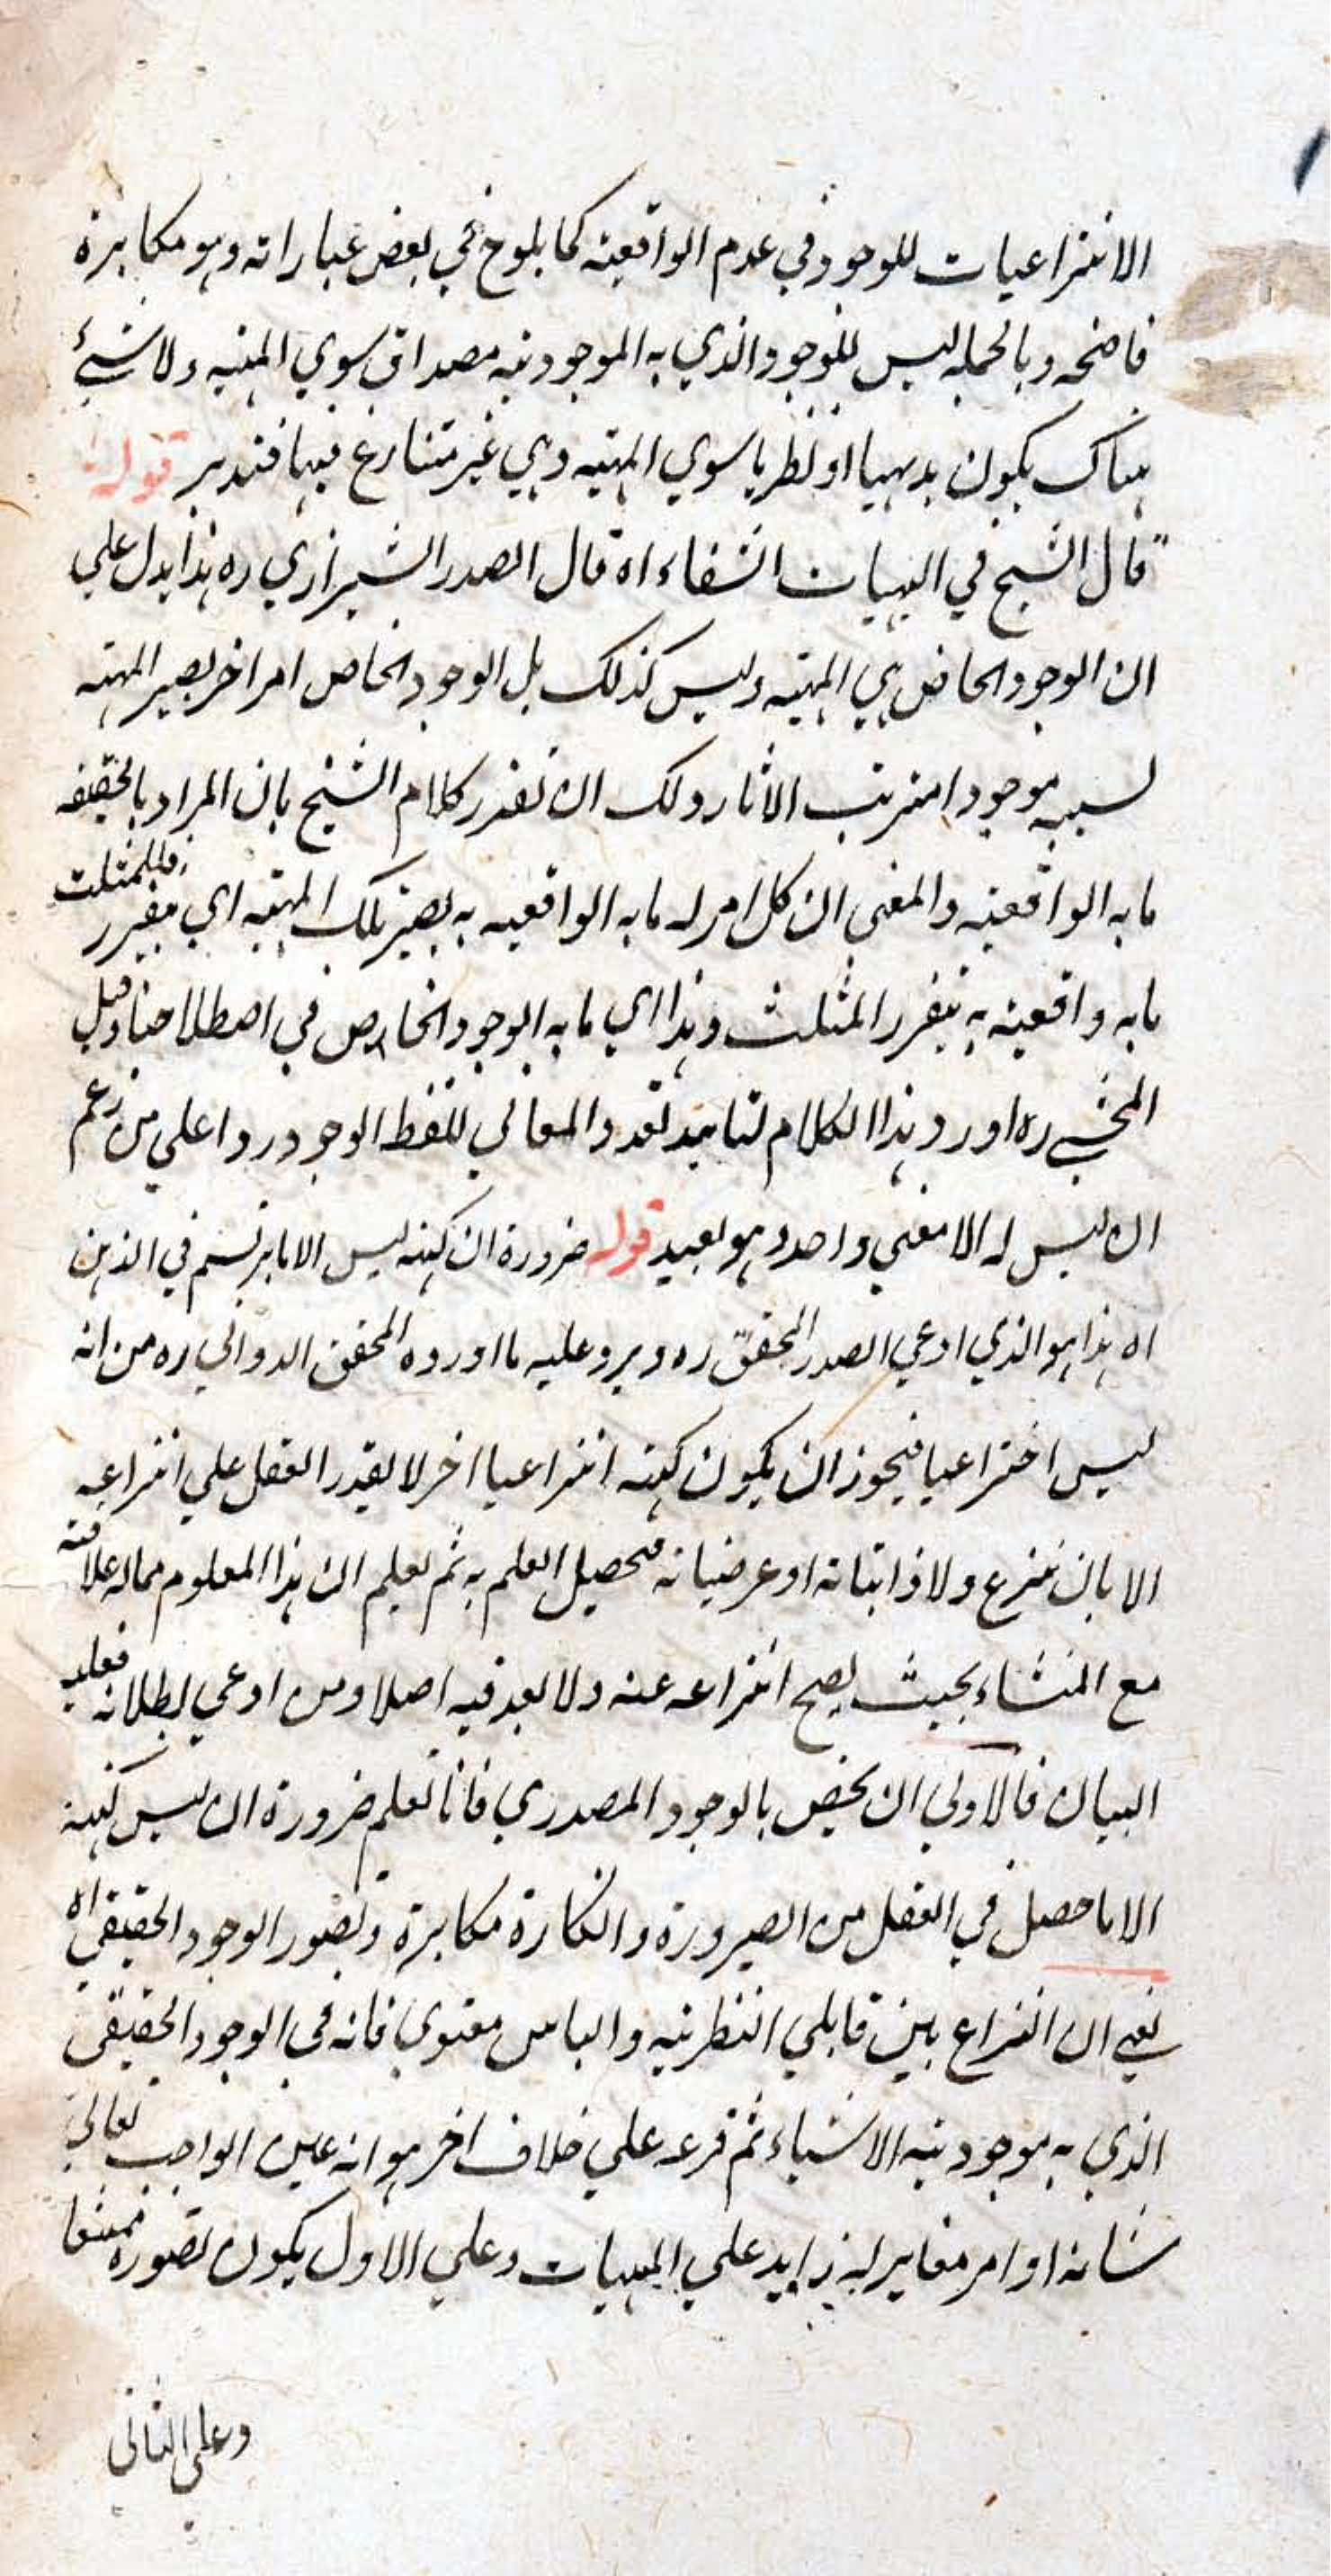 الانتزاعيات للوجود في عدم الواقعية كما يلوح في بعض عباراته وهو مكابرة
فاضحه وبالجمله ليس للوجود الذي به الموجودية مصداق سوي المهية ولا شيئ
هناك يكون بديهيا او نظريا سوي المهية وهي غير متنازع فيها فتدبر قوله
قال الشيخ في الهيات الشفاء اه قال الصدر الشيرازي ره هذا يدل علي
ان الوجود الخاص هي المهية وليس كذلك بل الوجود الخاص امر اخر يصير المهية
بسببه موجودا مترتب الاثار ولك ان تقرر كلام الشيخ بان المراد بالحقيقه
ما به الواقعية والمعني ان كل امر له ما به الواقعيه به يصير تلك المهية اي مقرر فللمثلث
ما به واقعية به يتقرر المثلث وهذا اي ما به الوجود الخاص في اصطلاحنا وقيل
المحشي ره اورد هذا الكلام لتاييد تعدد المعاني للفظ الوجود ردا علي من زعم
ان ليس له الا معني واحد وهو بعيد قوله ضرورة ان كنهه ليس الا ما يرتسم في الذهن
اه هذا هو الذي ادعي الصدر المحقق ره ويرد عليه ما اورده المحقق الدواني ره من انه
ليس اختراعيا فيجوز ان يكون كنهه انتزاعيا اخر لا يقدر العقل علي انتزاعه
الا بان ينتزع ولا ذاتياته او عرضياته فيحصل العلم به ثم يعلم ان هذا المعلوم مما له علاقة
مع المنشاء بحيث يصح انتزاعه عنه ولا بعد فيه اصلا ومن ادعي بطلانه فعليه
البيان فالاولي ان يخص بالوجود المصدري فانا نعلم ضرورة ان ليس كنهه
الا ما حصل في العقل من الصيرورة وانكاره مكابرة وتصور الوجود الحقيقي اه
يعني ان النزاع بين قابلي النظرية والباس معنوي فانه في الوجود الحقيقي
الذي به موجودية الاشياء ثم فرعه علي خلاف اخر هو انه عين الواجب تعالي
شانه او امر مغاير له زايد علي المهيات وعلي الاول يكون تصوره ممتنعا
وعلي الثاني